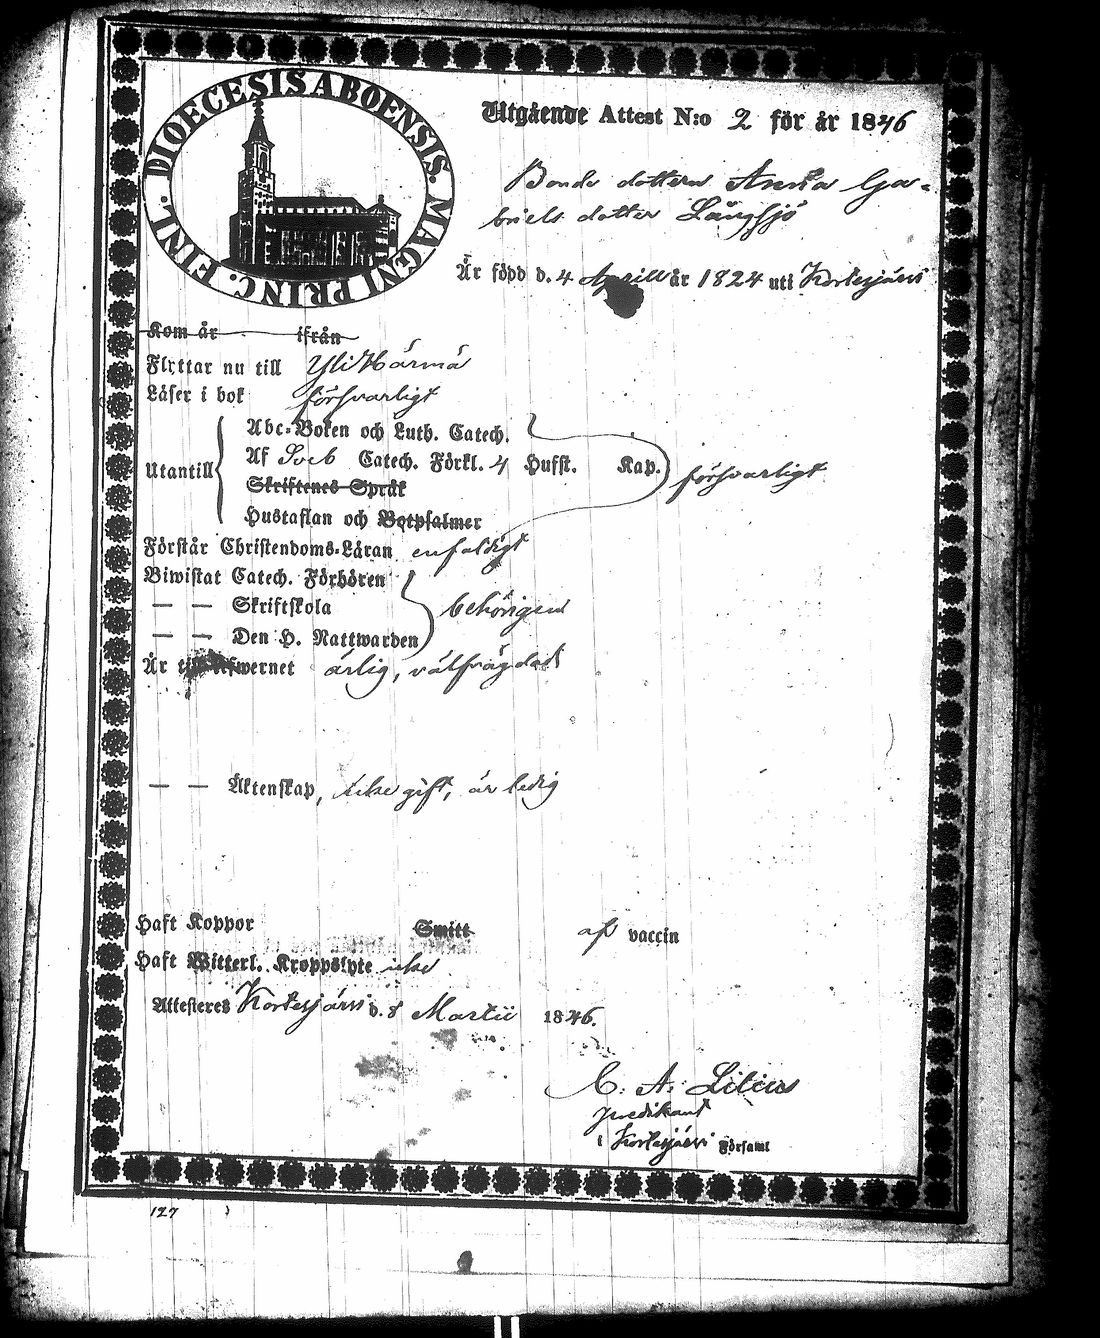 DIOECESIS ABOENSIS. MAGNI PRINC. FINL.
Utgående Attest N:o 2 för år 1846
Bonde dottern Anna Ga-
briels dotter Långsjö
Är född d. 4 Aprill år 1824 uti Kortesjärvi
Kom år ifrån
Flyttar nu till Yli Härmä
Läser i bok försvarligt
Utantill
Abc-Boken och Luth. Catech.
Af Sveb Catech. Förkl. 4 Hufst. Kap. försvarligt
Skriftenes Språk
Hustaflan och Botpsalmer
Förstår Christendoms-Läran enfaldigt
Biwistat Catech. Förhören
— — Skriftskola behörigen
— — Den H. Nattwarden
Är till lefwernet ärlig, välfrägdad
— — Äktenskap, icke gift, är ledig
Haft Koppor Smitt af vaccin
Haft Witterl. Kroppslyte icke
Attesteres Kortesjärvi d. 8 Martii 1846.
C. A. Lilius
predikant
i Kortesjärvi Församl
127